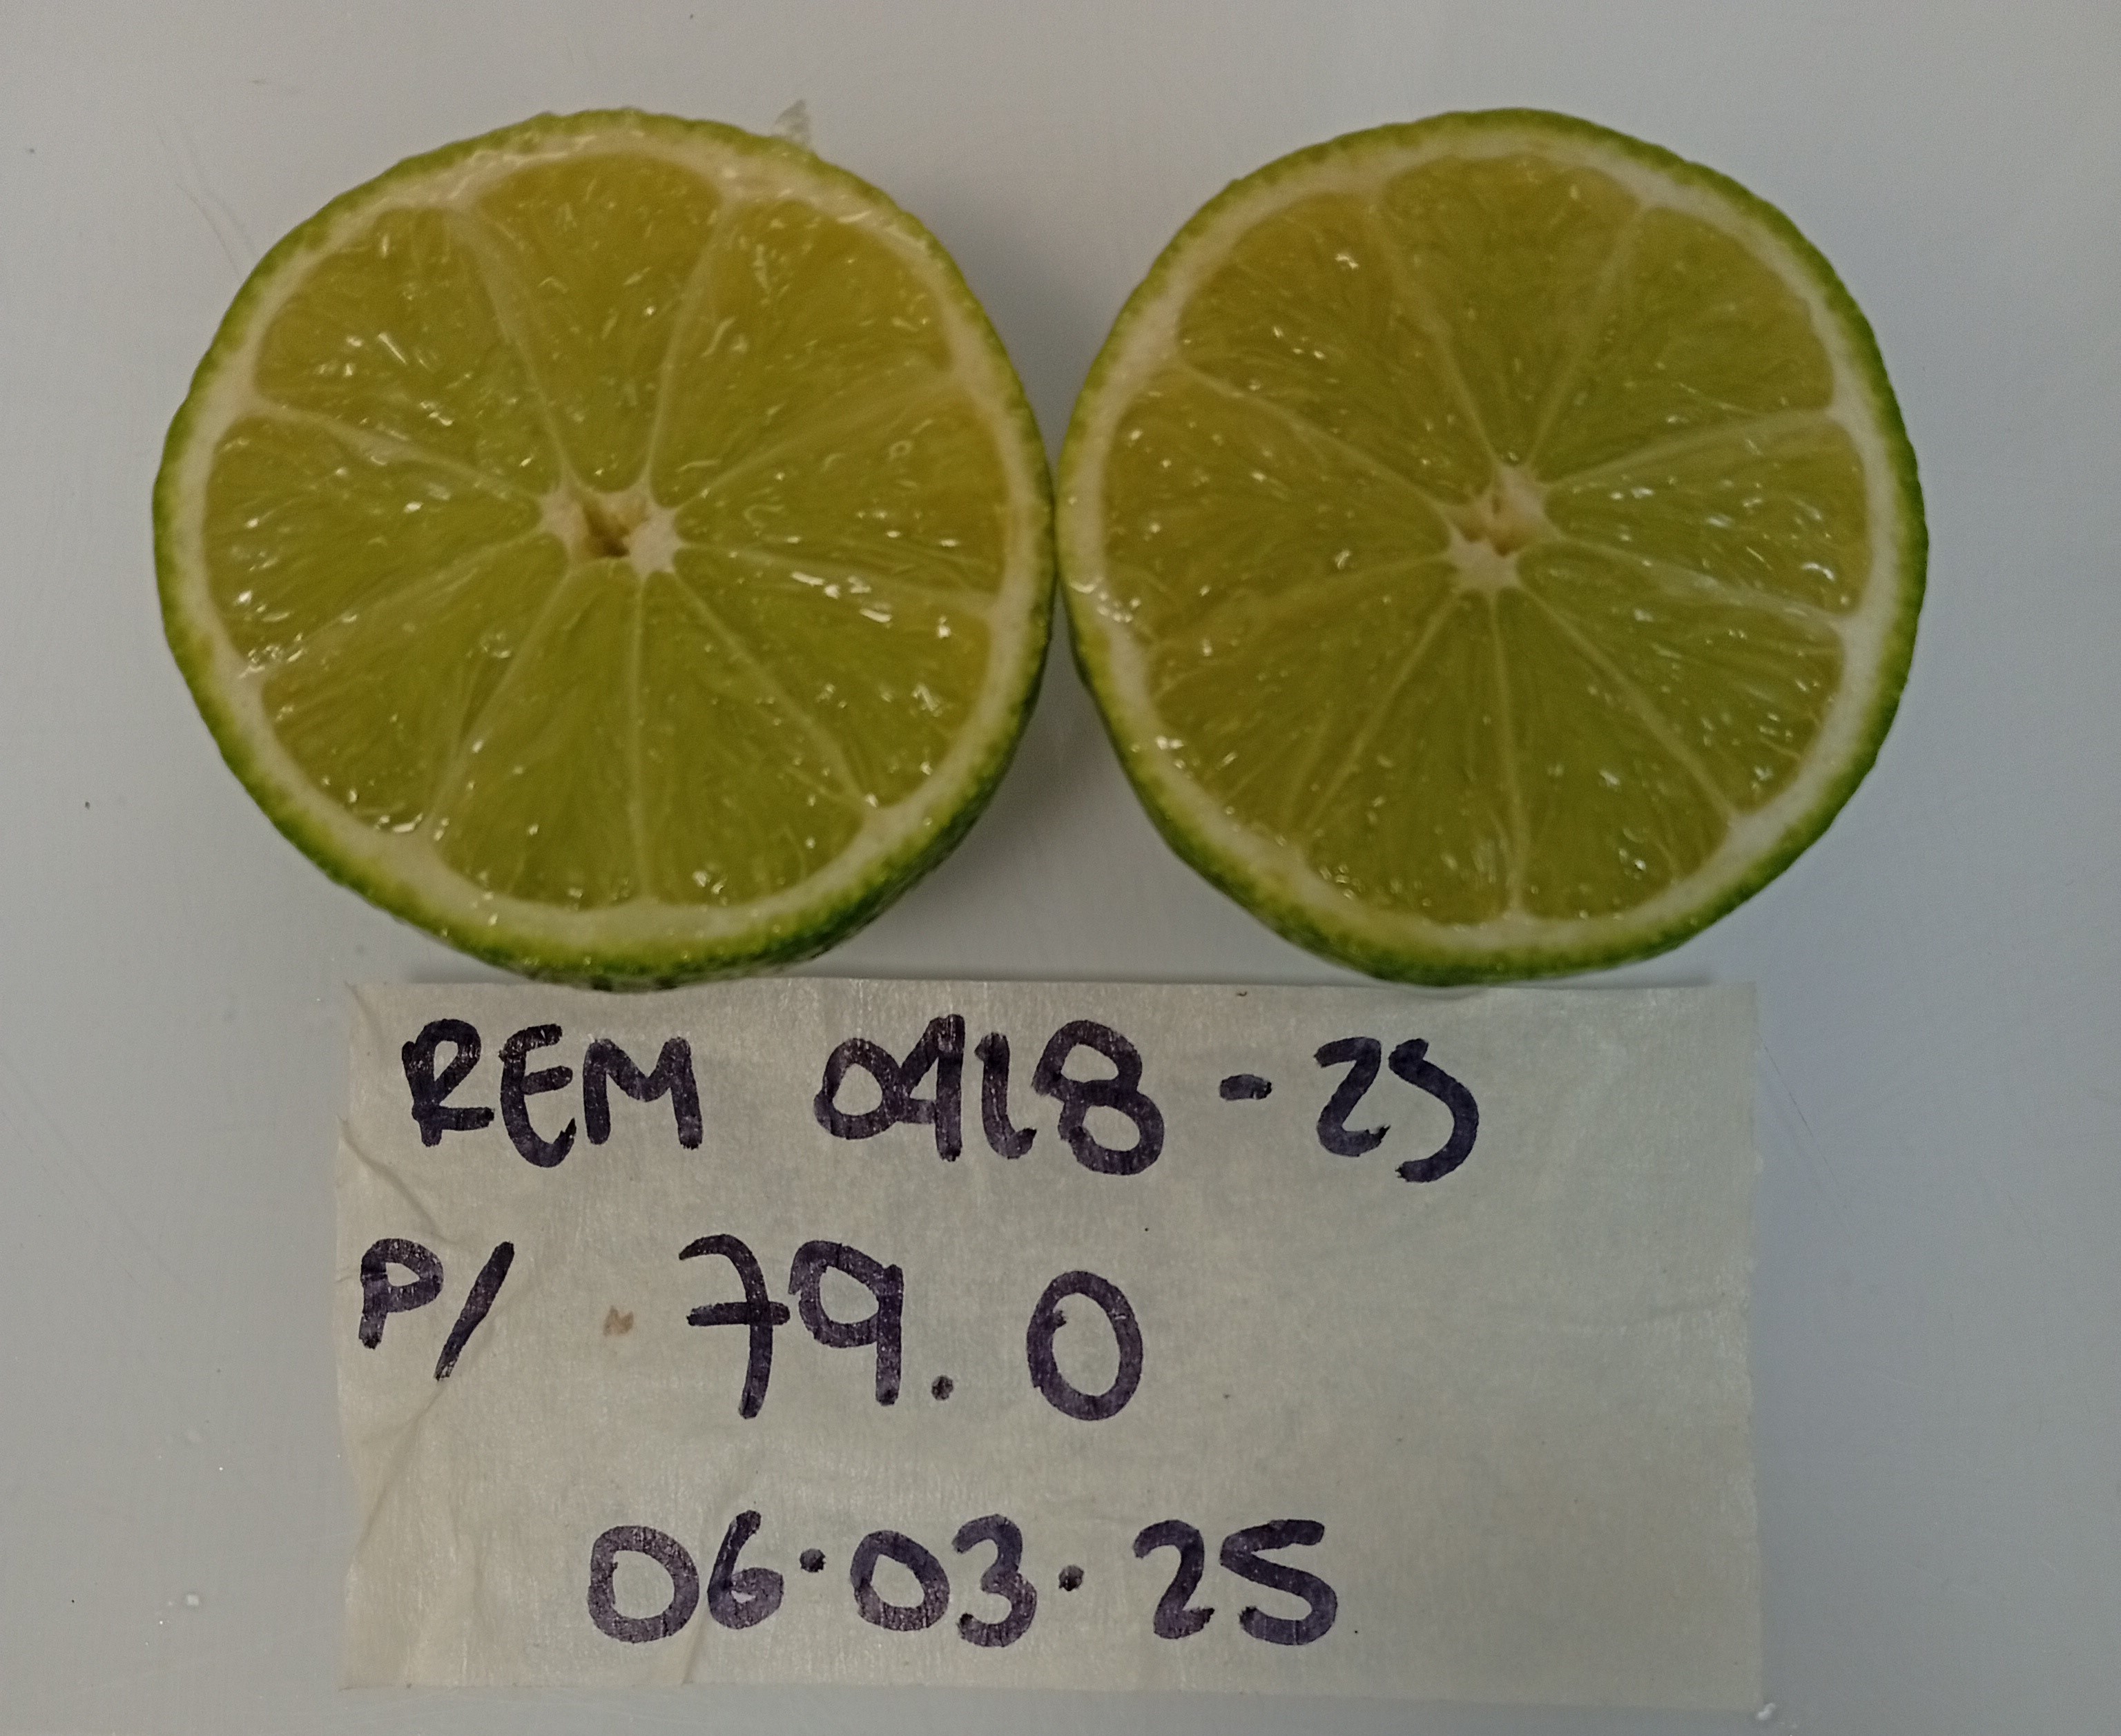 REM 0918-25
P/ 79.0
06.03.25